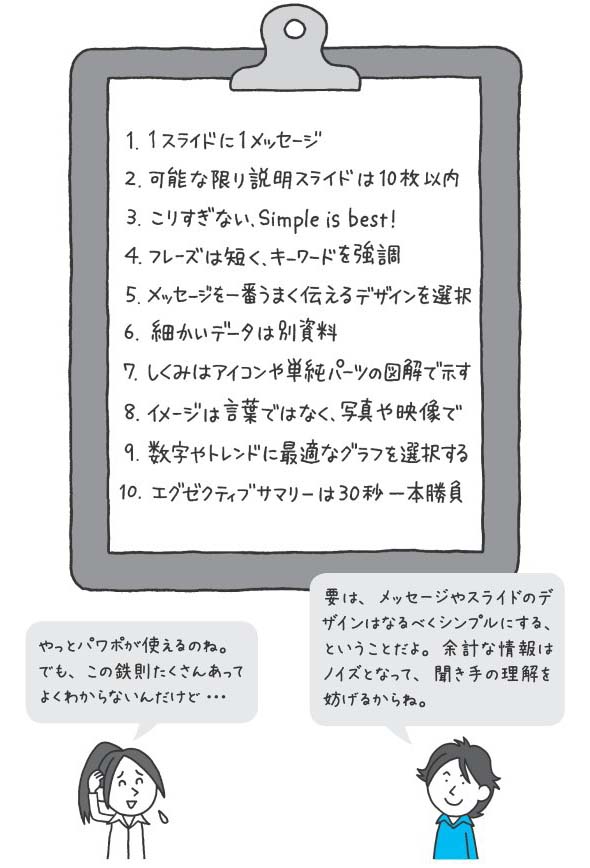 1. 1スライドに1メッセージ
2. 可能な限り説明スライドは10枚以内
3. こりすぎない、Simple is best!
4. フレーズは短く、キーワードを強調
5. メッセージを一番うまく伝えるデザインを選択
6. 細かいデータは別資料
7. しくみはアイコンや単純パーツの図解で示す
8. イメージは言葉ではなく、写真や映像で
9. 数字やトレンドに最適なグラフを選択する
10. エグゼクティブサマリーは30秒一本勝負
やっとパワポが使えるのね。
でも、この鉄則たくさんあって
よくわからないんだけど・・・
要は、メッセージやスライドのデ
ザインはなるべくシンプルにする、
ということだよ。余計な情報は
ノイズとなって、聞き手の理解を
妨げるからね。